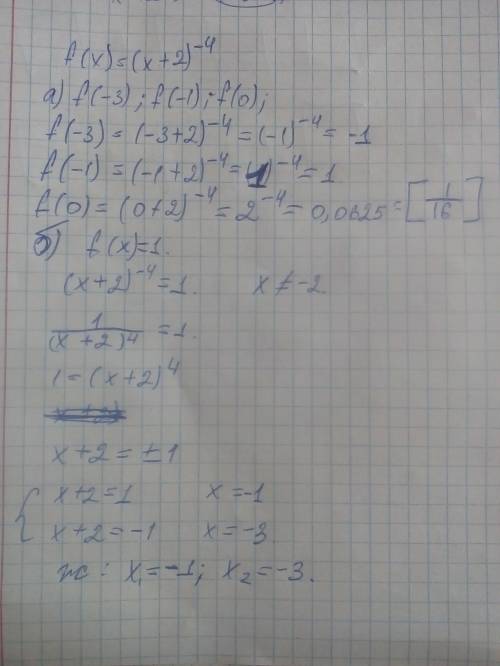 f(x)=(x+2)^-4
а) f(-3); f(-1); f(0);
f(-3) = (-3+2)^-4 = (-1)^-4 = -1
f(-1) = (-1+2)^-4 = (1)^-4 = 1
f(0) = (0+2)^-4 = 2^-4 = 0,0625 = [1/16]
б) f(x)=1.
(x+2)^-4 = 1. x ≠ -2.
1/(x+2)^4 = 1.
1 = (x+2)^4
x+2 = ±1
{ x+2=1 x=-1
x+2=-1 x=-3
жс: x₁=-1; x₂=-3.